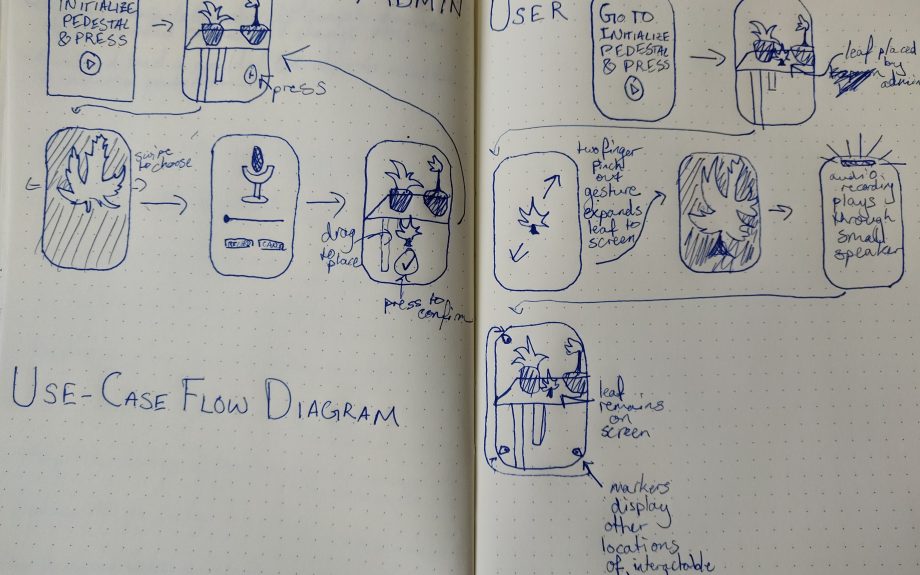 ADMIN
INITIALIZE
PEDESTAL
& PRESS
press
swipe
to choose
drag
to
place
press to
confirm
USE-CASE FLOW DIAGRAM
USER
GO TO
INITIALIZE
PEDESTAL
& PRESS
leaf placed
by
admin
two finger
pinch
out
gesture
expands
leaf to
screen
audio
recording
plays
through
small
speaker
leaf
remains
on
screen
markers
display
other
locations
of interactable